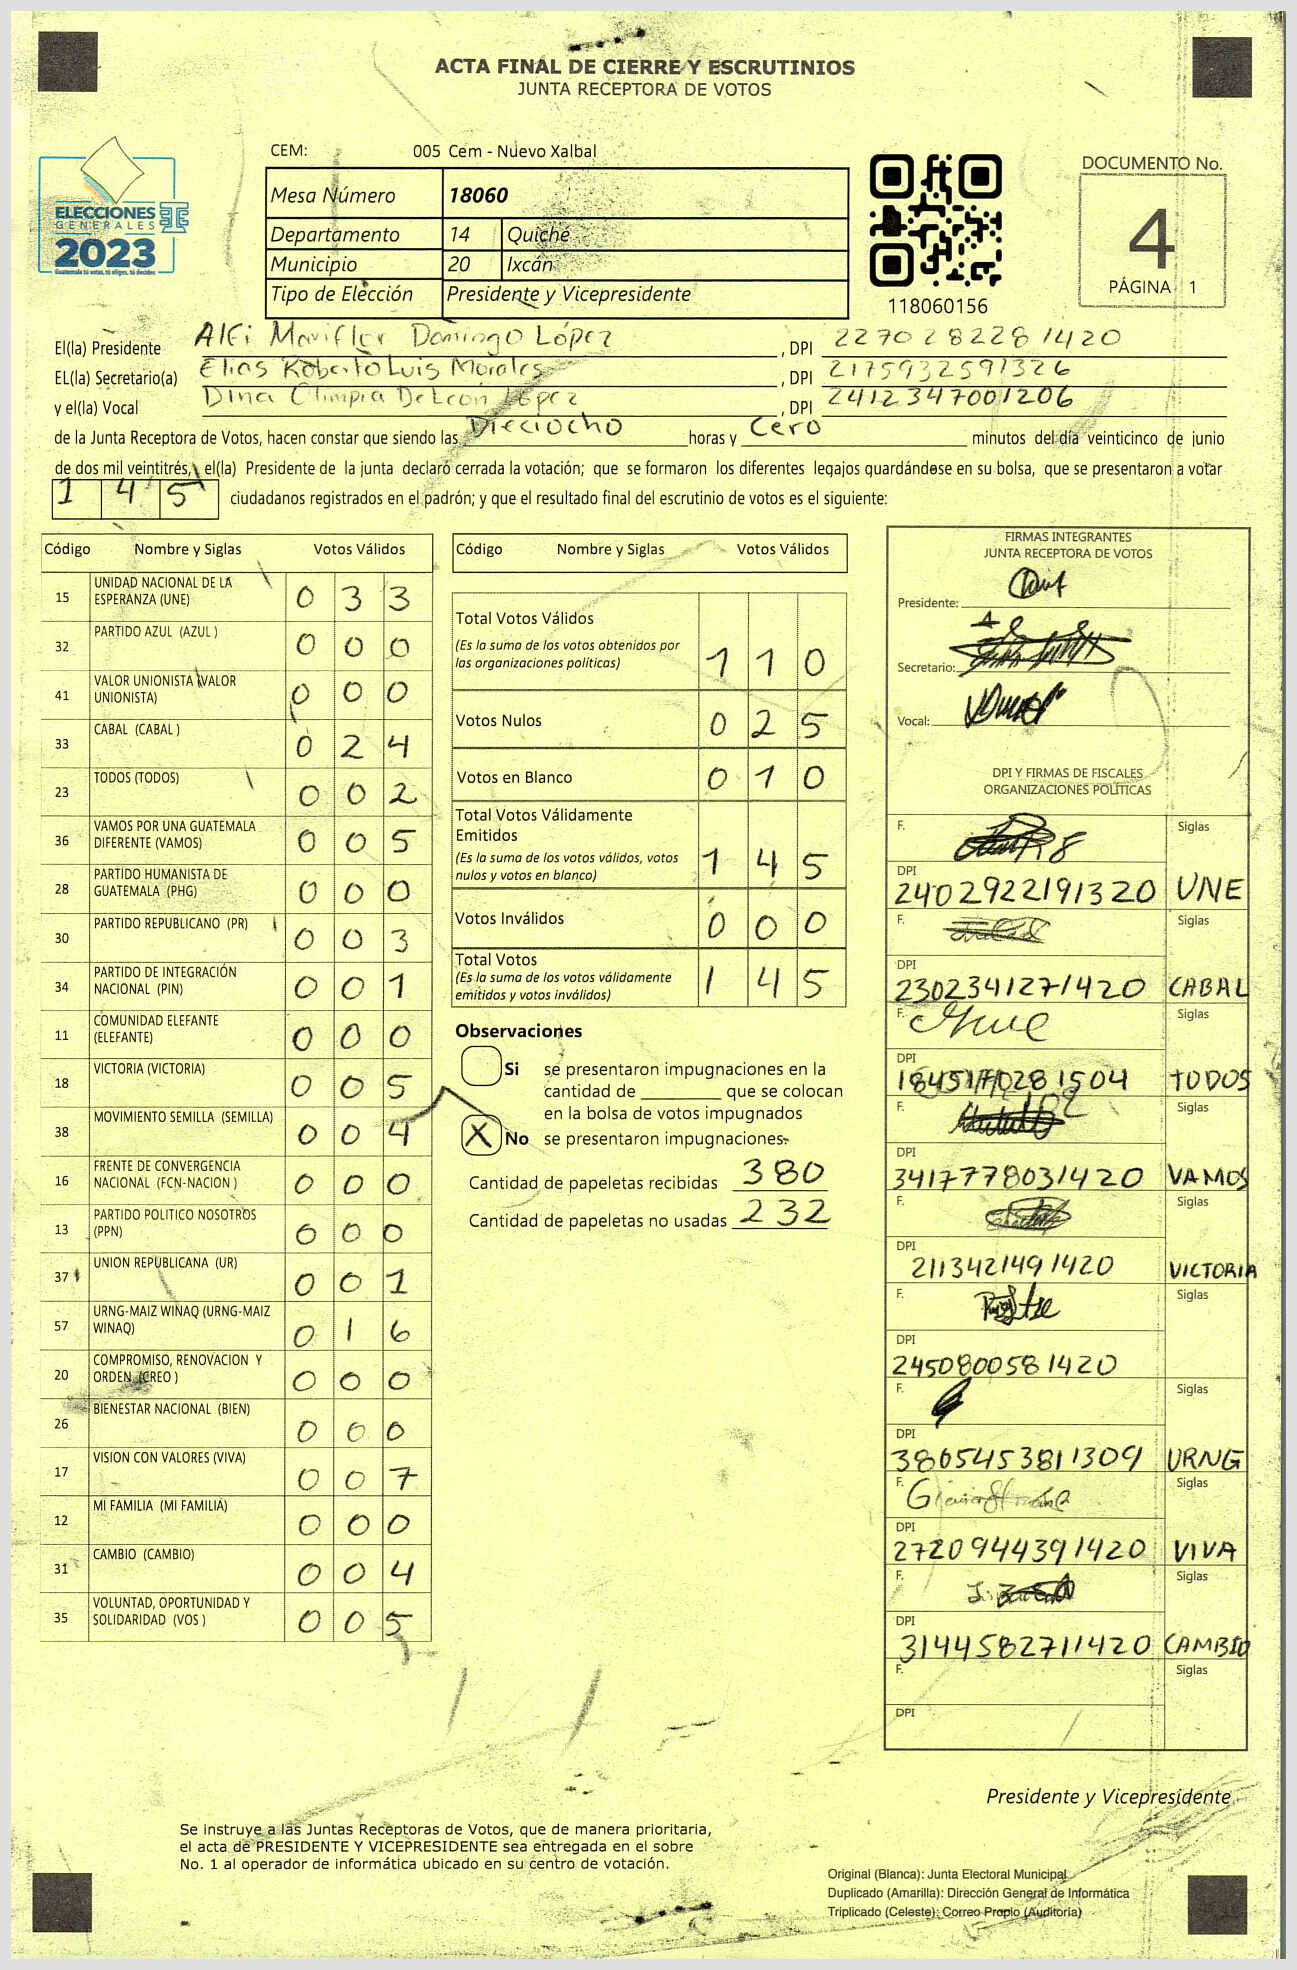 ACTA FINAL DE CIERRE Y ESCRUTINIOS
JUNTA RECEPTORA DE VOTOS
CEM: 005 Cem - Nuevo Xalbal
Mesa Número 18060
Departamento 14 Quiché
Municipio 20 Ixcán
Tipo de Elección Presidente y Vicepresidente
ELECCIONES
GENERALES
2023
Guatemala tú votas, tú eliges, tú decides
118060156
DOCUMENTO No.
4
PÁGINA 1
El(la) Presidente Alei Mariflor Domingo López, DPI 2270282281420
EL(la) Secretario(a) Elias Roberto Luis Morales, DPI 2175932591326
y el(la) Vocal Dina Olimpia DeLeón López, DPI 2412347001206
de la Junta Receptora de Votos, hacen constar que siendo las Dieciocho horas y Cero minutos del día veinticinco de junio
de dos mil veintitrés, el(la) Presidente de la junta declaró cerrada la votación; que se formaron los diferentes legajos guardándose en su bolsa, que se presentaron a votar
1 4 5 ciudadanos registrados en el padrón; y que el resultado final del escrutinio de votos es el siguiente:
Código Nombre y Siglas Votos Válidos
15 UNIDAD NACIONAL DE LA ESPERANZA (UNE) 0 3 3
32 PARTIDO AZUL (AZUL ) 0 0 0
41 VALOR UNIONISTA (VALOR UNIONISTA) 0 0 0
33 CABAL (CABAL ) 0 2 4
23 TODOS (TODOS) 0 0 2
36 VAMOS POR UNA GUATEMALA DIFERENTE (VAMOS) 0 0 5
28 PARTIDO HUMANISTA DE GUATEMALA (PHG) 0 0 0
30 PARTIDO REPUBLICANO (PR) 0 0 3
34 PARTIDO DE INTEGRACIÓN NACIONAL (PIN) 0 0 1
11 COMUNIDAD ELEFANTE (ELEFANTE) 0 0 0
18 VICTORIA (VICTORIA) 0 0 5
38 MOVIMIENTO SEMILLA (SEMILLA) 0 0 4
16 FRENTE DE CONVERGENCIA NACIONAL (FCN-NACION ) 0 0 0
13 PARTIDO POLITICO NOSOTROS (PPN) 0 0 0
37 UNION REPUBLICANA (UR) 0 0 1
57 URNG-MAIZ WINAQ (URNG-MAIZ WINAQ) 0 1 6
20 COMPROMISO, RENOVACION Y ORDEN (CREO ) 0 0 0
26 BIENESTAR NACIONAL (BIEN) 0 0 0
17 VISION CON VALORES (VIVA) 0 0 7
12 MI FAMILIA (MI FAMILIA) 0 0 0
31 CAMBIO (CAMBIO) 0 0 4
35 VOLUNTAD, OPORTUNIDAD Y SOLIDARIDAD (VOS ) 0 0 5
Código Nombre y Siglas Votos Válidos
Total Votos Válidos
(Es la suma de los votos obtenidos por
las organizaciones políticas) 1 1 0
Votos Nulos 0 2 5
Votos en Blanco 0 1 0
Total Votos Válidamente
Emitidos
(Es la suma de los votos válidos, votos
nulos y votos en blanco) 1 4 5
Votos Inválidos 0 0 0
Total Votos
(Es la suma de los votos válidamente
emitidos y votos inválidos) 1 4 5
Observaciones
Si se presentaron impugnaciones en la
cantidad de ________ que se colocan
en la bolsa de votos impugnados
X No se presentaron impugnaciones.
Cantidad de papeletas recibidas 380
Cantidad de papeletas no usadas 232
FIRMAS INTEGRANTES
JUNTA RECEPTORA DE VOTOS
Presidente:
Secretario:
Vocal:
DPI Y FIRMAS DE FISCALES
ORGANIZACIONES POLÍTICAS
F. Siglas
DPI
2402922191320 UNE
F. Siglas
DPI
2302341271420 CABAL
F. Siglas
DPI
TODOS
F. Siglas
DPI
3417778031420 VAMOS
F. Siglas
DPI
2113421491420 VICTORIA
F. Siglas
DPI
2450800581420
F. Siglas
DPI
3805453811309 URNG
F. Siglas
DPI
2720944391420 VIVA
F. Siglas
DPI
3144582711420 CAMBIO
F. Siglas
DPI
Presidente y Vicepresidente
Se instruye a las Juntas Receptoras de Votos, que de manera prioritaria,
el acta de PRESIDENTE Y VICEPRESIDENTE sea entregada en el sobre
No. 1 al operador de informática ubicado en su centro de votación.
Original (Blanca): Junta Electoral Municipal
Duplicado (Amarilla): Dirección General de Informática
Triplicado (Celeste): Correo Propio (Auditoria)